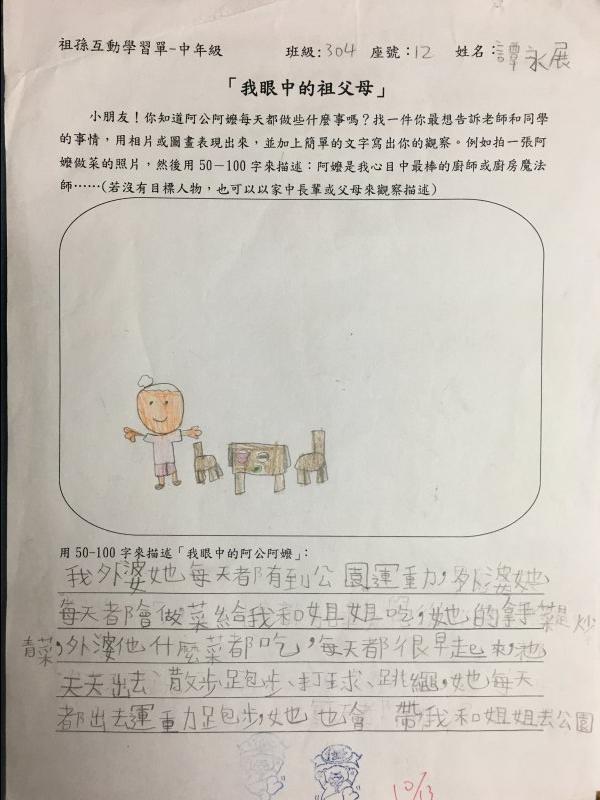 祖孫互動學習單-中年級 班級:304 座號:12 姓名:譚永展
「我眼中的祖父母」
小朋友！你知道阿公阿嬤每天都做些什麼事嗎？找一件你最想告訴老師和同學
的事情，用相片或圖畫表現出來，並加上簡單的文字寫出你的觀察。例如拍一張阿
嬤做菜的照片，然後用50-100字來描述：阿嬤是我心目中最棒的廚師或廚房魔法
師……(若沒有目標人物，也可以以家中長輩或父母來觀察描述)
用50-100字來描述「我眼中的阿公阿嬤」:
我外婆她每天都有到公園運動，外婆她
每天都會做菜給我和姐姐吃，她的拿手菜是炒
青菜，外婆他什麼菜都吃，每天都很早起來，她
天天出去散步、跑步、打球、跳繩，她每天
都出去運動跑步，她也會帶我和姐姐去公園
10/13